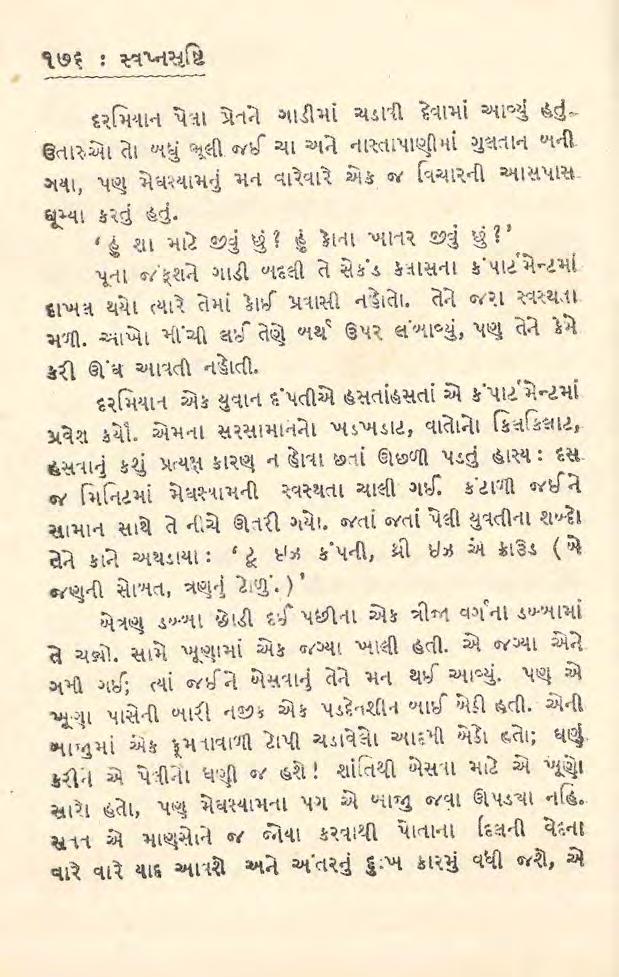 ૧૭૬ : સ્વપ્નસૃષ્ટિ
દરમિયાન પેલા પ્રેતને ગાડીમાં ચડાવી દેવામાં આવ્યું હતું.
ઉતારુઓ તો બધું ભૂલી જઈ ચા અને નાસ્તાપાણીમાં ગુલતાન બની
ગયા, પણ મેઘશ્યામનું મન વારેવારે એક જ વિચારની આસપાસ
ઘૂમ્યા કરતું હતું.
‘ હું શા માટે જીવું છું? હું કોના ખાતર જીવું છું?’
પૂના જંક્શને ગાડી બદલી તે સેકંડ ક્લાસના કંપાર્ટમેન્ટમાં
દાખલ થયો ત્યારે તેમાં કોઈ પ્રવાસી નહોતો. તેને જરા સ્વસ્થતા
મળી. આંખો મીંચી લઈ તેણે બર્થ ઉપર લંબાવ્યું, પણ તેને કેમે
કરી ઊંઘ આવતી નહોતી.
દરમિયાન એક યુવાન દંપતીએ હસતાંહસતાં એ કંપાર્ટમેન્ટમાં
પ્રવેશ કર્યો. એમના સરસામાનનો ખડખડાટ, વાતોનો કિલકિલાટ,
હસવાનું કશું પ્રત્યક્ષ કારણ ન હોવા છતાં ઊછળી પડતું હાસ્ય : દસ
જ મિનિટમાં મેઘશ્યામની સ્વસ્થતા ચાલી ગઈ. કંટાળી જઈને
સામાન સાથે તે નીચે ઊતરી ગયો. જતાં જતાં પેલી યુવતીના શબ્દો
તેને કાને અથડાયા : ‘ ટૂ ઇઝ કંપની, થ્રી ઇઝ એ ક્રાઉડ ( બે
જણની સોબત, ત્રણનું ટોળું. )’
બેત્રણ ડબ્બા છોડી દઈ પછીના એક ત્રીજા વર્ગના ડબ્બામાં
તે ચડ્યો. સામે ખૂણામાં એક જગ્યા ખાલી હતી. એ જગ્યા એને
ગમી ગઈ; ત્યાં જઈને બેસવાનું તેને મન થઈ આવ્યું. પણ એ
ખૂણા પાસેની બારી નજીક એક પડદેનશીન બાઈ બેઠી હતી. એની
બાજુમાં એક ફૂમતાવાળી ટોપી ચડાવેલો આદમી બેઠો હતો; ઘણું
કરીને એ પેલીનો ધણી જ હશે! શાંતિથી બેસવા માટે એ ખૂણો
સારો હતો, પણ મેઘશ્યામના પગ એ બાજુ જવા ઊપડ્યા નહિ.
સતત એ માણસોને જ જોયા કરવાથી પોતાના દિલની વેદના
વારે વારે યાદ આવશે અને અંતરનું દુઃખ કારમું વધી જશે, એ